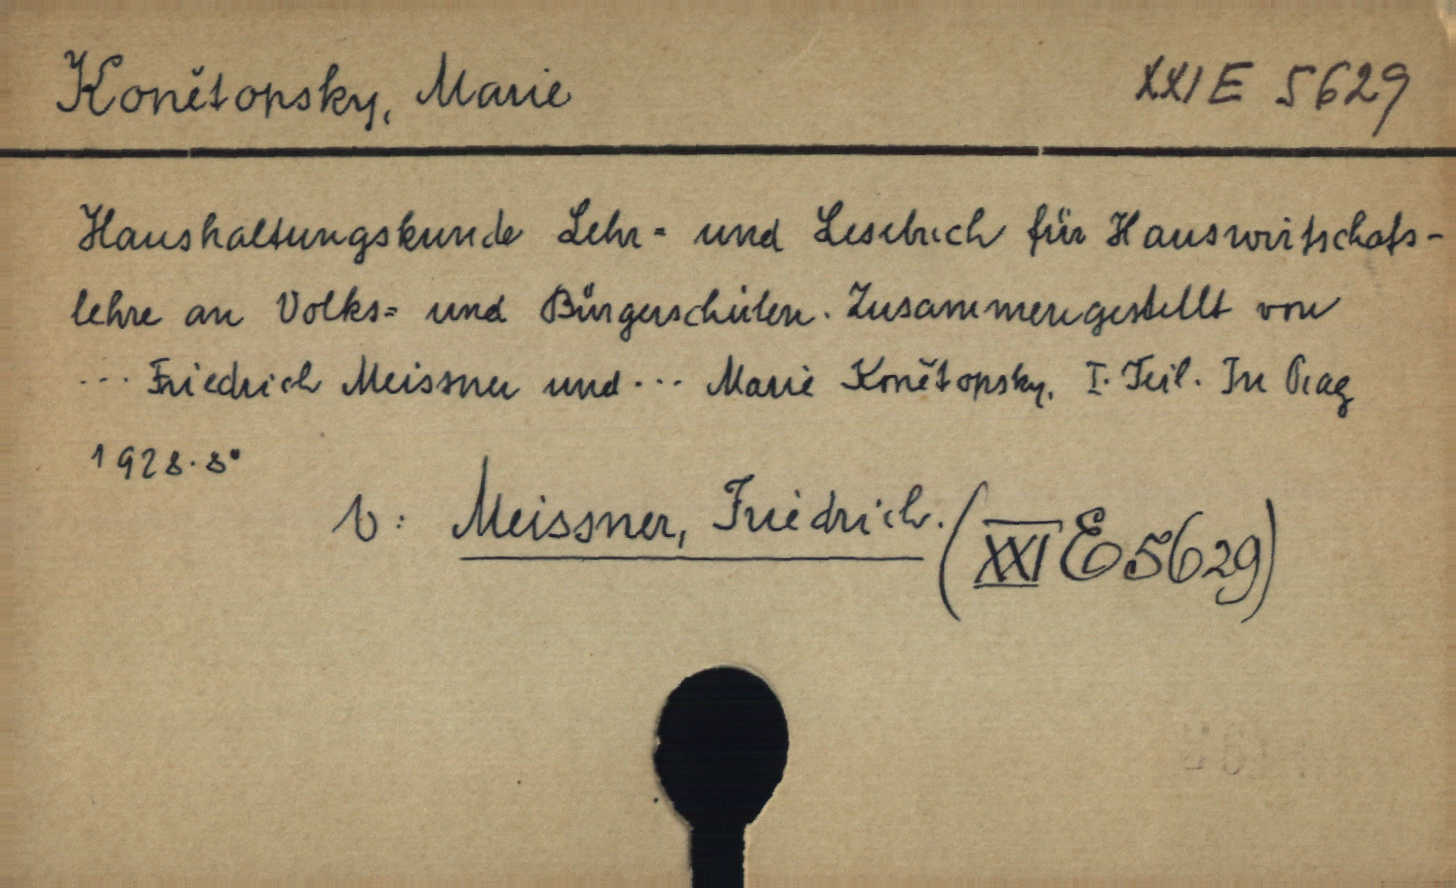 Konětopsky, Marie XXI E 5629
Haushaltungskunde Lehr= und Lesebuch für Hauswirtschafs-
lehre an Volks= und Bürgerschulen. Zusammengestellt von
... Friedrich Meissner und ... Marie Konětopsky, I. Teil. In Prag
1928. 8°
V: Meissner, Friedrich. (XXI E 5629)